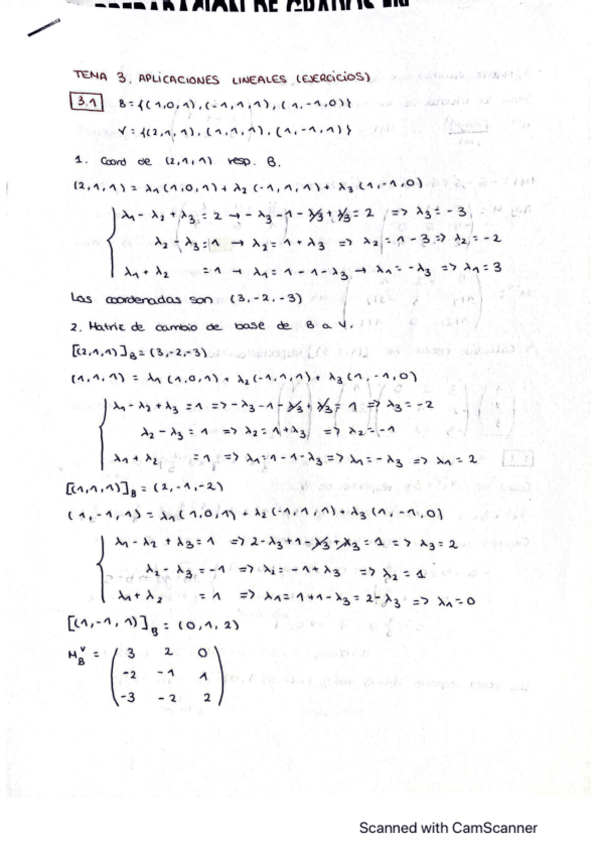 TEMA 3. APLICACIONES LINEALES (EJERCICIOS)
3.1 B = {(1,0,1), (-1,1,1), (1,-1,0)}
V = {(2,1,1), (1,1,1), (1,-1,1)}
1. Coord de (2,1,1) resp. B.
(2,1,1) = λ1(1,0,1) + λ2(-1,1,1) + λ3(1,-1,0)
λ1 - λ2 + λ3 = 2 → -λ3 - 1 - λ3 + λ3 = 2 => λ3 = -3
λ2 - λ3 = 1 → λ2 = 1 + λ3 => λ2 = 1 - 3 => λ2 = -2
λ1 + λ2 = 1 → λ1 = 1 - 1 - λ3 → λ1 = -λ3 => λ1 = 3
Las coordenadas son (3,-2,-3)
2. Matriz de cambio de base de B a V.
[(2,1,1)]B = (3,-2,-3)
(1,1,1) = λ1(1,0,1) + λ2(-1,1,1) + λ3(1,-1,0)
λ1 - λ2 + λ3 = 1 => -λ3 - 1 - λ3 + λ3 = 1 => λ3 = -2
λ2 - λ3 = 1 => λ2 = 1 + λ3 => λ2 = -1
λ1 + λ2 = 1 => λ1 = 1 - 1 - λ3 => λ1 = -λ3 => λ1 = 2
[(1,1,1)]B = (2,-1,-2)
(1,-1,1) = λ1(1,0,1) + λ2(-1,1,1) + λ3(1,-1,0)
λ1 - λ2 + λ3 = 1 => 2 - λ3 + 1 - λ3 + λ3 = 1 => λ3 = 2
λ2 - λ3 = -1 => λ2 = -1 + λ3 => λ2 = 1
λ1 + λ2 = 1 => λ1 = 1 + 1 - λ3 = 2 - λ3 => λ1 = 0
[(1,-1,1)]B = (0,1,2)
M_B^V = 3 2 0
-2 -1 1
-3 -2 2
Scanned with CamScanner